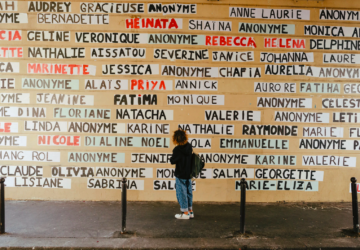 AH AUDREY GRACIEUSE ANONYME ANNE LAURIE ANONYME
BERNADETTE HEÏNATA SHAÏNA ANONYME MONICA A
CIA CELINE VERONIQUE ANONYME REBECCA HELENA DELPHINE
ETTE NATHALIE AISSATOU SEVERINE JANICE JOHANNA LAURE
MARINETTE JESSICA ANONYME CHAFIA AURELIA ANONY
ANONYME ALAÏS PRIYA ANNICK AURORE FATIHA GE
JEANINE FATIMA MONIQUE ANONYME CELES
ME DINA FLORIANE NATACHA VALERIE ANONYME LETI
LE LINDA ANONYME KARINE NATHALIE RAYMONDE MARIE
NICOLE DIALINE NOEL OLA EMMANUELLE ANONYME PA
HANG ROL ANONYME JENNI ANONYME KARINE VALERIE
CLAUDE OLIVIA ANONYME MON ME SALMA GEORGETTE
LISIANE SABRINA SAL MARIE-ELIZA